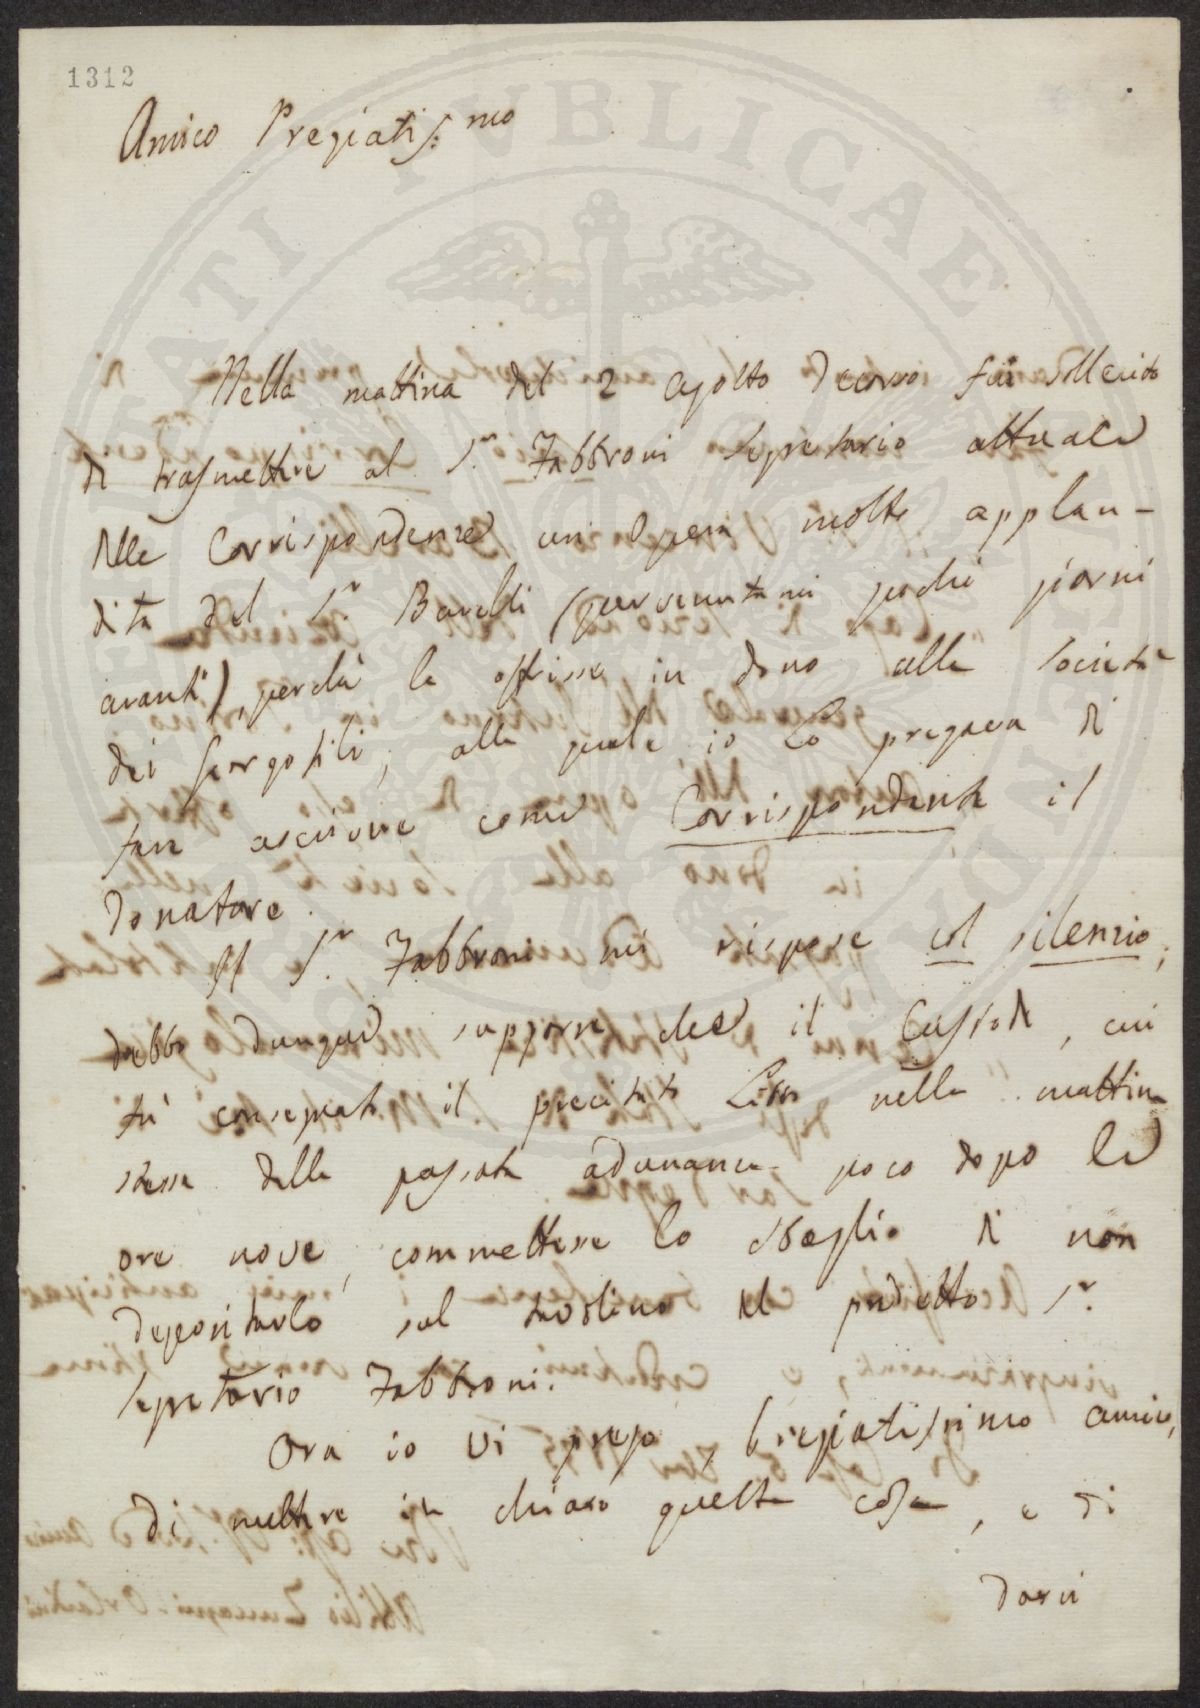 1312
Amico Pregiatiss:mo
Nella mattina del 2 Agosto decorso fui sollecito
di trasmettere al Sr. Fabbroni Segretario attuale
delle Corrispondenze un' Opera molto applau-
dita del Sr. Barelli (pervenutami pochi giorni
avanti), perchè la offrisse in dono alla Società
dei Georgofili, alla quale io Lo pregava di
fare ascrivere come Corrispondente il
donatore.
Il Sr. Fabbroni mi rispose col silenzio;
debbo dunque supporre che il Custode, cui
fu consegnato il precitato Libro nella mattina
stessa della passata adunanza poco dopo le
ore nove, commettesse lo sbaglio di non
depositarlo sul tavolino del predetto Sr.
Segretario Fabbroni.
Ora io vi prego, Pregiatissimo amico,
di mettere in chiaro questa cosa, e di
darvi
PVBLICAE